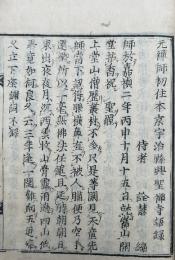 元禪師初住本京宇治縣興聖禪寺語錄
侍者 詮慧 編
師於嘉禎二年丙申十月十五日始就當山開
堂拈香祝 聖罷
上堂山僧歷叢林不多只是等閑見天童先
師當下認得眼橫鼻直不被人瞞便乃空手
還鄉所以一毫無佛法任運且延時朝朝日
東出夜夜月沈西雲收山骨露雨過四山低
畢竟如何良久云三年逢一閏雞向五更啼
久立下座謝詞不錄